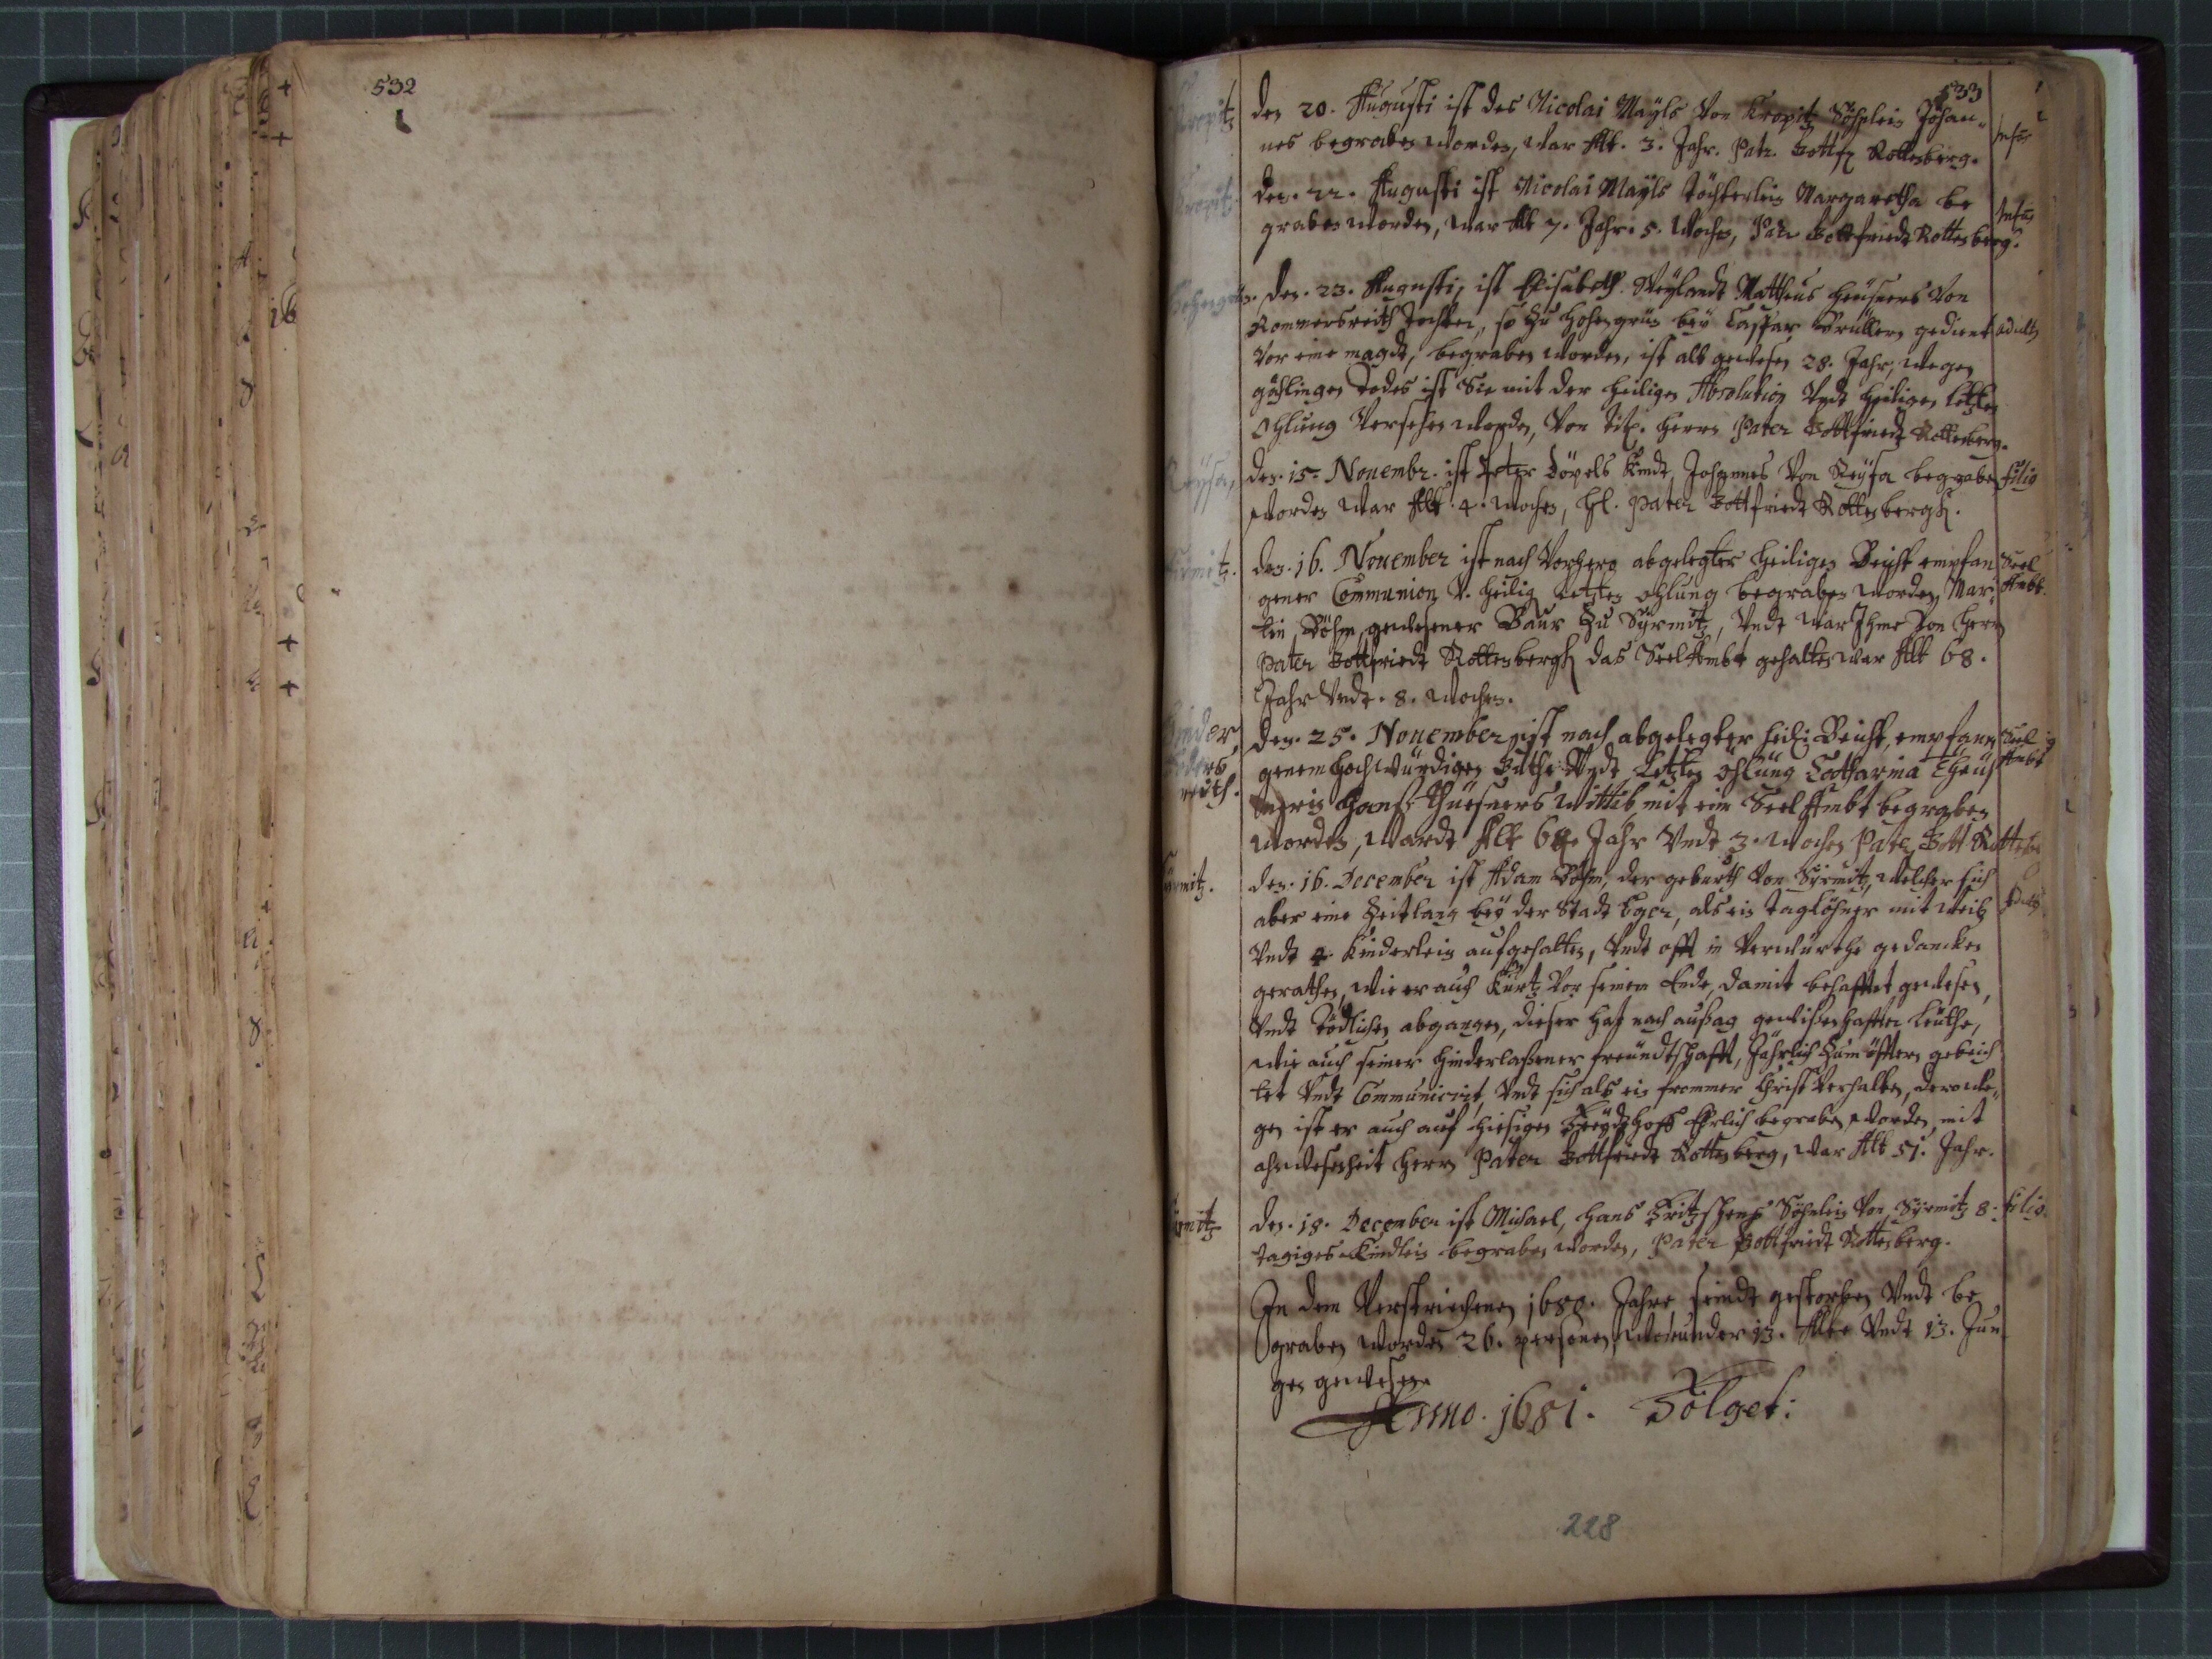 532
533
Kropitz
den 20. Augusti ist des Nicolai Mayls Von Kropitz Söhnlein Johan-
nes begraben worden, war Alt. 3. Jahr. Patr. Gottfr Rottenberg.
Infans
Kropitz.
den. 22. Augusti ist Nicolai Mayls Töchterlein Margaretha be
graben worden, war Alt 7. Jahr. 5. Wochen, Patr Gottfriedt Rottenberg.
Infans
Hohengrün.
den. 23. Augusti, ist Elisabeth Weylandt Mattheus Heüsners Von
Rommersreith Tochter, so zu Hohengrün beÿ Casspar Brüllern gedient
adulta
Vor eine magdt, begraben worden, ist alt gewesen 28. Jahr, wegen
gählingen Todes ist Sie mit der heiligen Absolution Vndt heiligen letzten
Öhlung Versehen worden, Von Tit. herrn Pater Gottfriedt Rottenberg.
Reÿsa,
den. 15. Nouembr. ist Peter Kindt Johannes Von Reÿsa begraben
filio
worden war Alt. 4. wochen, Hl. Pater Gottfriedt Rottenbergh.
Sirmitz.
den. 16. Nouember ist nach Vorhero abgelegter heiligen Beicht empfan
Seel
gener Communion V. heilig letzten ohlung begraben worden, Mar-
Ambt.
tin Böhm, gewesener Baur zu Sÿrmitz, Vndt war Ihme Von herrn
Pater Gottfriedt Rottenbergh das Seel Ambt gehalten war Alt 68.
Jahr Vndt. 8. wochen.
den. 25. Nouember ist nach abgelegter heilig Beicht, empfan
Seel
Ambt
genem hochwürdigen Guthe Vndt Letzten ohlung Catharina
Hanß Wittib mit eim Seel Ambt begraben
worden, wardt Alt Jahr Vndt 3. wochen Pater Gott. Rottenb
Sirmitz.
den. 16. December ist Adam Böhm, der geburth Von Sÿrmitz, welcher sich
aber eine Zeitlang beÿ der Stadt Eger, als ein taglöhner mit weib
Vndt Kinderlein aufgehalten, Vndt offt in Verwürthe gedancken
gerathen, wie er auch Kurtz Vor seinem Ende, damit behafftet gewesen,
Vndt Tödlichen abgangen, dieser hat nach außag gewißenhaffter leüthe,
wie auch seiner hinderlaßener freündtschafft, Jährlich zum öfftern gebeich
tet Vndt Communicirt, Vndt sich als ein frommer Christ Verhalten, derowe-
gen ist er auch auf hiesigen Freÿdthoff Ehrlich begraben worden, mit
ahnwesenheit herrn Pater Gottfriedt Rottenberg, war Alt 51. Jahr.
Sirmitz
den. 18. December ist Michael, Hans Söhnlein Von Sÿrmitz 8.
filio.
tagiges Kindlein begraben worden, Pater Gottfriedt Rottenberg.
In dem Verstrichenen 1680. Jahre seindt gestorben Vndt be
graben worden 26. personen worunder 13. Alte Vndt 13. Jun
gen gewesen.
Anno. 1681. Folget:
228